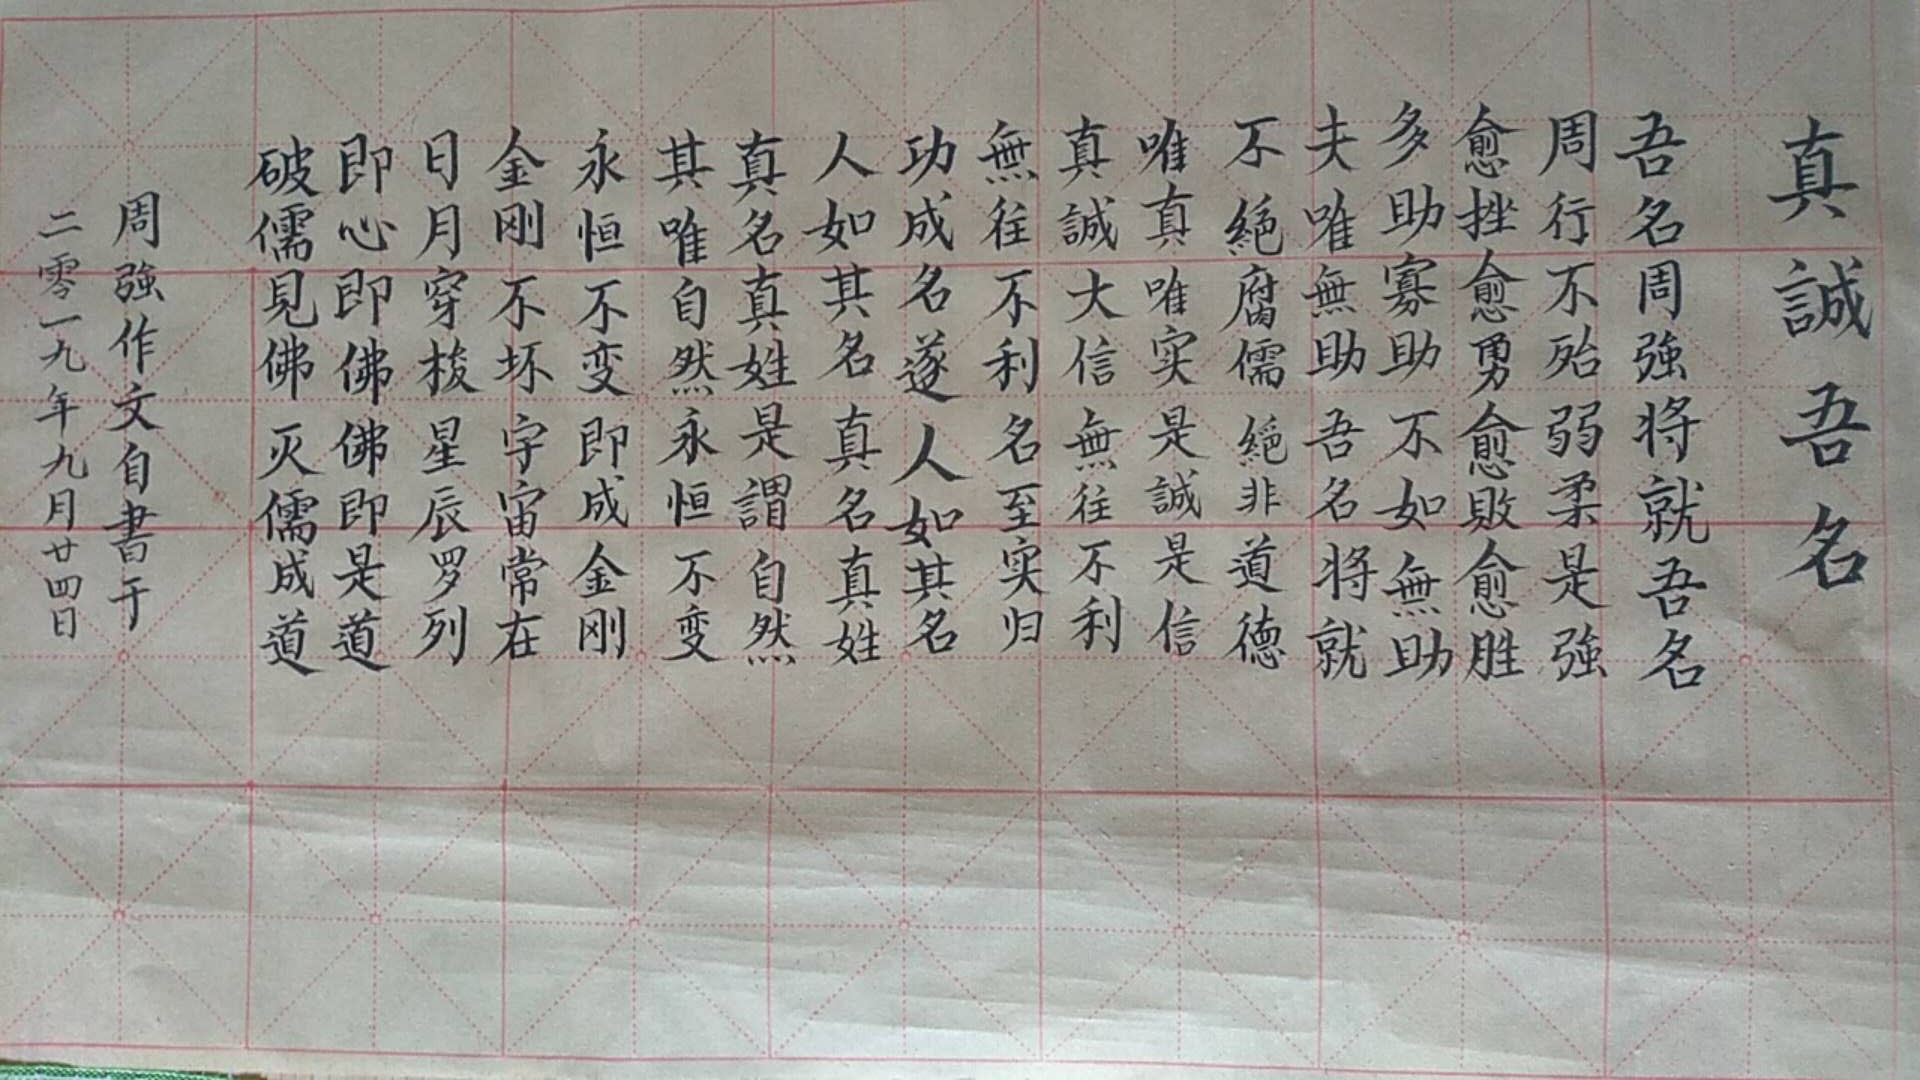 真誠吾名
吾名周強将就吾名
周行不殆弱柔是強
愈挫愈勇愈敗愈胜
多助寡助不如無助
夫唯無助吾名将就
不絕腐儒絕非道德
唯真唯实是誠是信
真誠大信無往不利
無往不利名至实归
功成名遂人如其名
人如其名真名真姓
真名真姓是謂自然
其唯自然永恒不变
永恒不变即成金刚
金刚不坏宇宙常在
日月穿梭星辰罗列
即心即佛佛即是道
破儒見佛灭儒成道
周強作文自書于
二零一九年九月廿四日